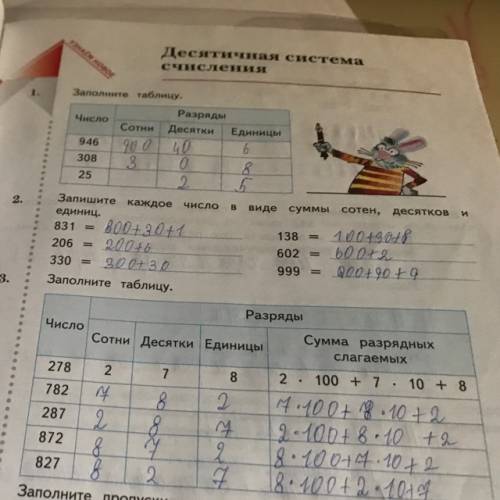 УЗНАЁМ НОВОЕ
Десятичная система
счисления
1. Заполните таблицу.
Число Разряды
Сотни Десятки Единицы
946 900 40 6
308 3 0 8
25 2 5
2. Запишите каждое число в виде суммы сотен, десятков и
единиц.
831 = 800+30+1 138 = 100+30+8
206 = 200+6 602 = 600+2
330 = 300+30 999 = 900+90+9
3. Заполните таблицу.
Число Разряды
Сотни Десятки Единицы Сумма разрядных
слагаемых
278 2 7 8 2 · 100 + 7 · 10 + 8
782 7 8 2 7·100+8·10+2
287 2 8 7 2·100+8·10+2
872 8 7 2 8·100+7·10+2
827 8 2 7 8·100+2·10+7
Заполните